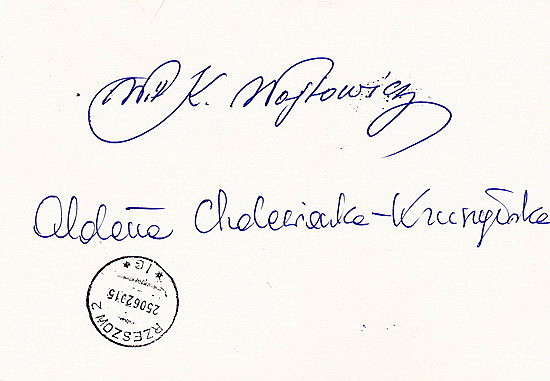 Wit K. Wojtowicz
Aldona Cholewianka-Kruszyńska
RZESZÓW 2
25062015
* IG *